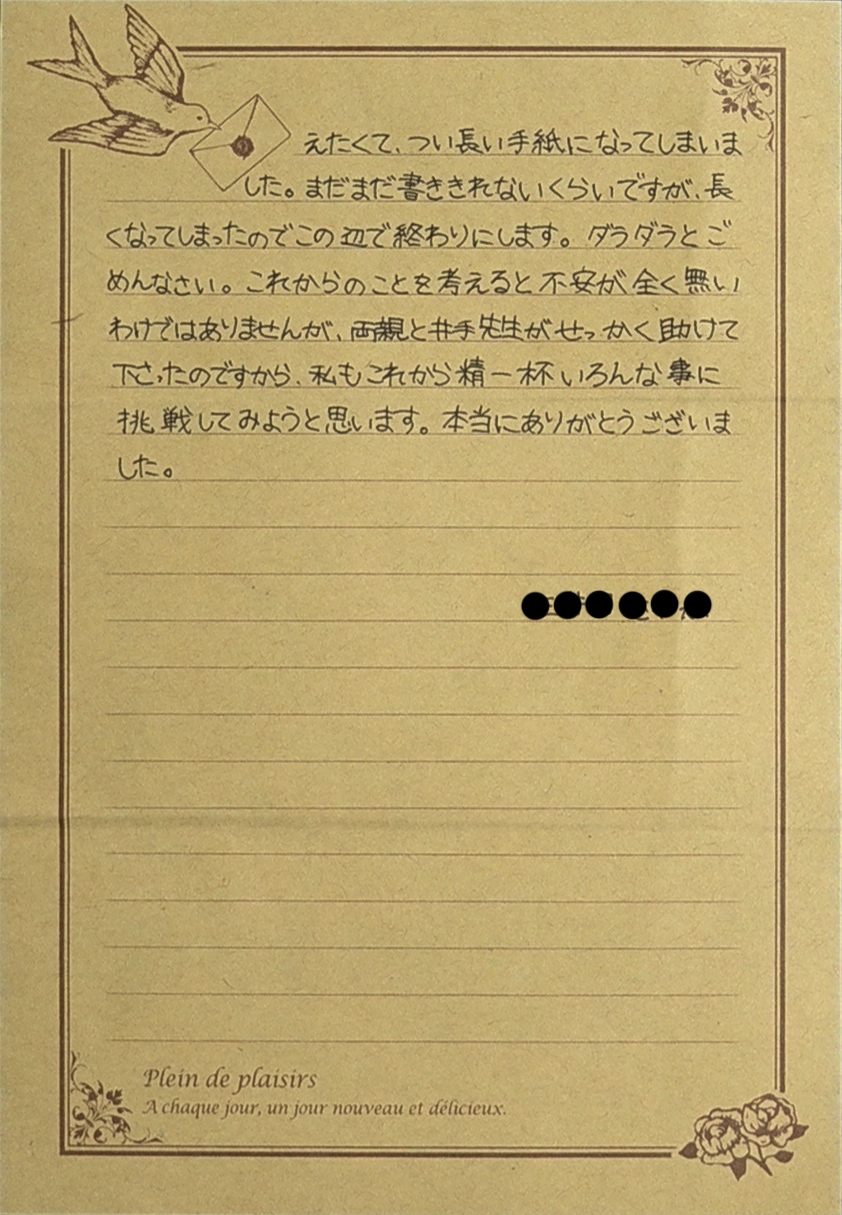 えたくて、つい長い手紙になってしまいま
した。まだまだ書ききれないくらいですが、長
くなってしまったのでこの辺で終わりにします。ダラダラとご
めんなさい。これからのことを考えると不安が全く無い
わけではありませんが、両親と井手先生がせっかく助けて
下さったのですから、私もこれから精一杯いろんな事に
挑戦してみようと思います。本当にありがとうございま
した。
Plein de plaisirs
A chaque jour, un jour nouveau et délicieux.